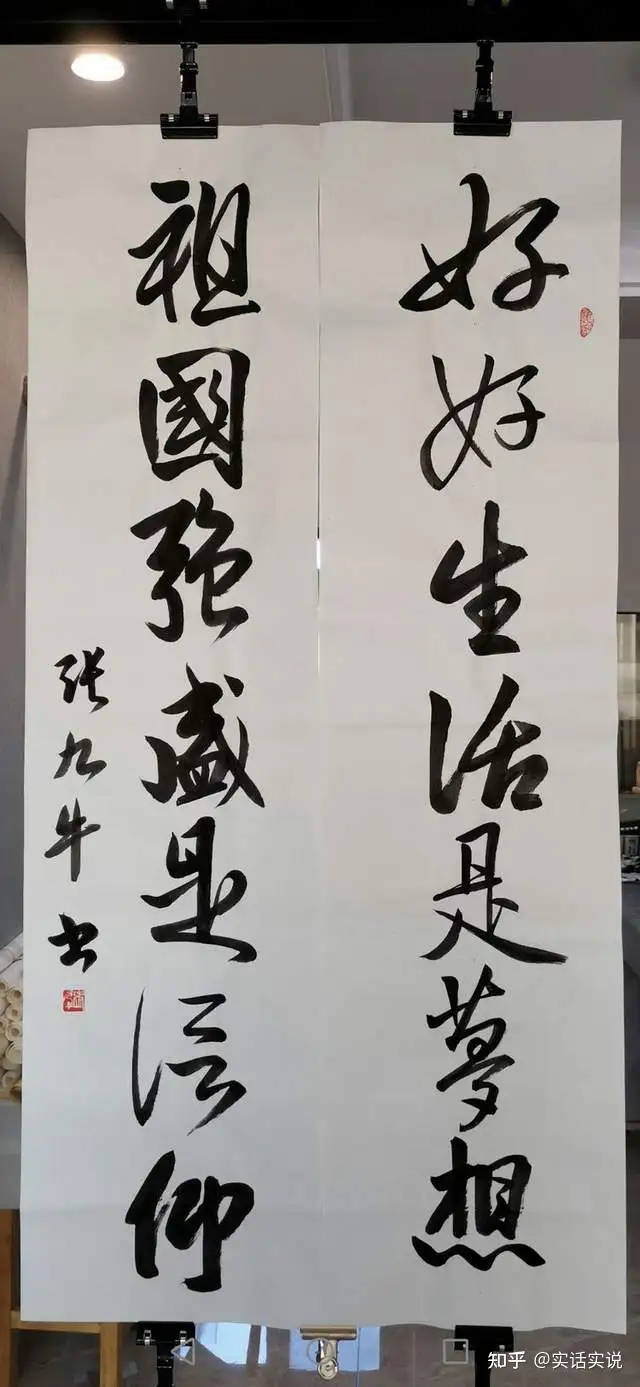 好好生活是夢想
祖國強盛是信仰
张九牛书
知乎 @实话实说